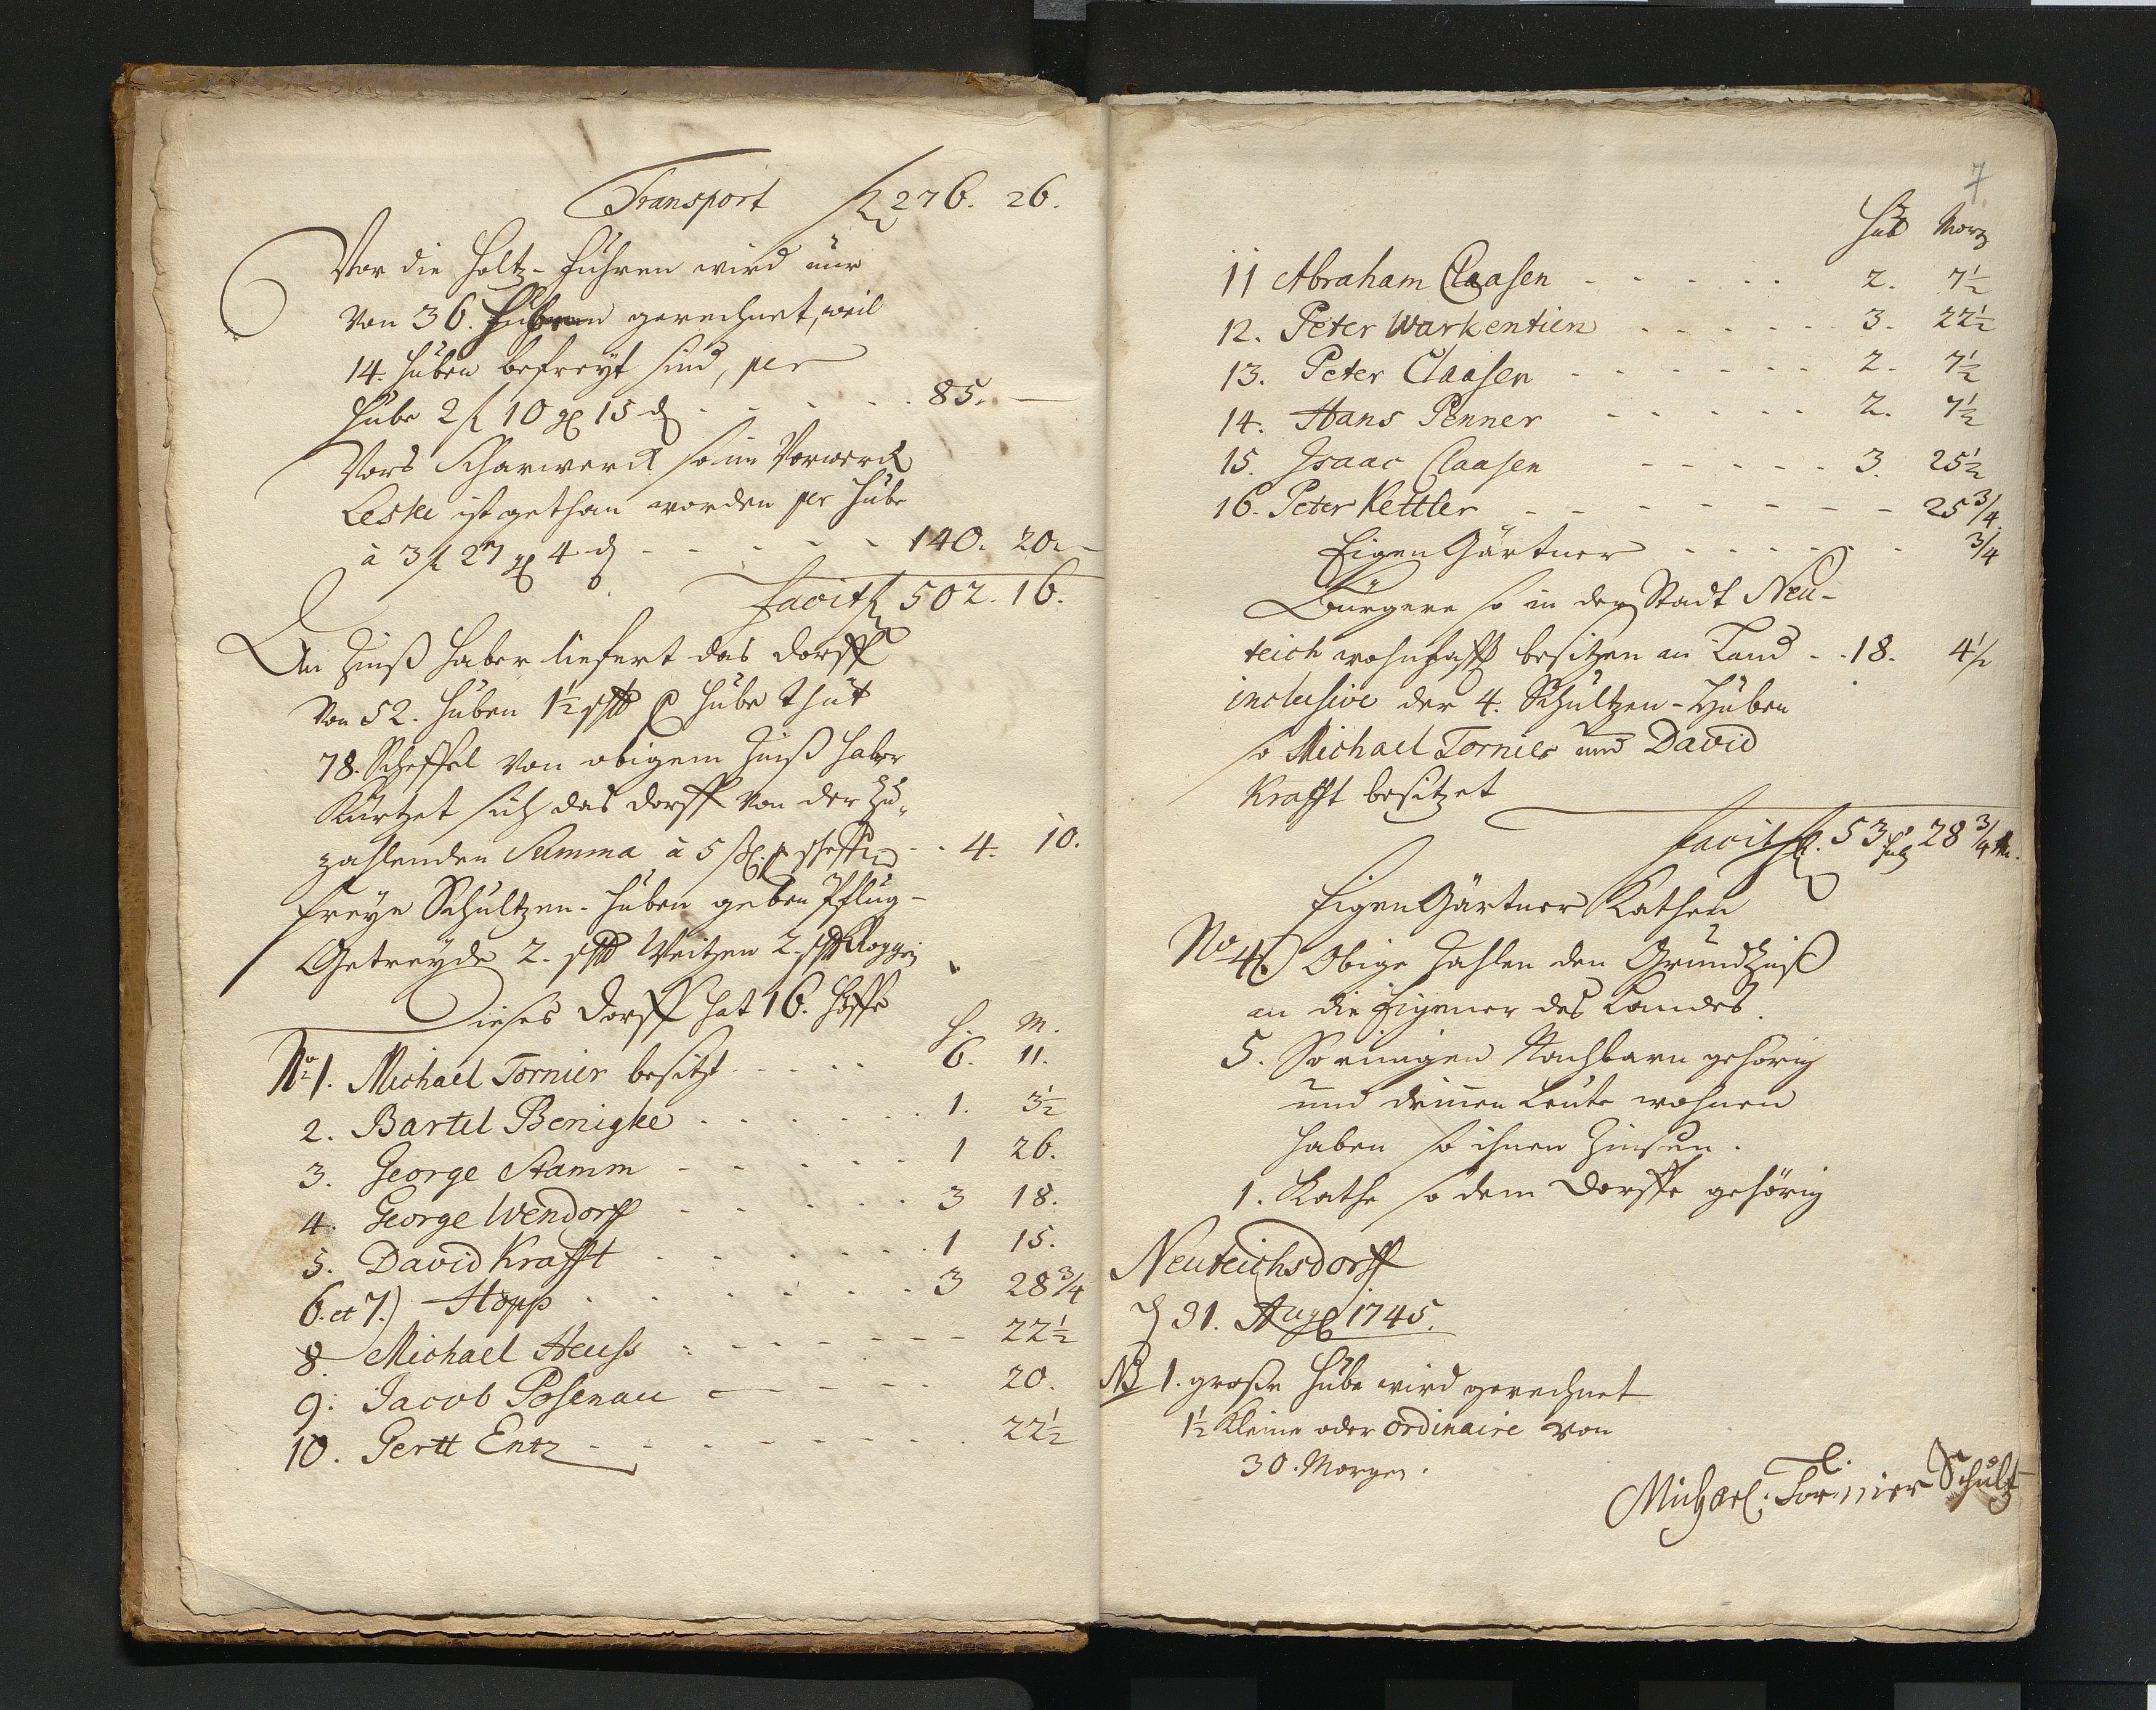 Transport fl 276. 26.
Vor die Holtz-Fuhren wird nur
von 36. Huben gerechnet, weil
14. Huben befreyt sind, per
Hube 2 fl 10 gr 15 d - - - - 85. —
Vors Scharwerck so im Vorwerck
Leske ist gethan worden per Hube
à 3 fl 27 gr 4 d - - - - - 140. 20. -
facit fl 502. 16.
An Zinß Haber liefert das Dorff
Von 52. Huben 1½ schfl p Hube thut
78. Scheffel von obigem Zinß Haber
Kürtzet sich das Dorff von der Zu-
zahlenden Summa à 5 ß. p scheffel - - 4. 10.
freye Schultzen-Huben geben Pflug-
Getreyde 2. schfl Weitzen 2. schfl Roggen
Dieses Dorff hat 16. Höffe
H. M.
No 1. Michael Tornier besitzt - - - - 6. 11.
2. Bartel Benigke - - - - - 1. 3½
3. George Stamm - - - - - 1 26.
4. George Wendorff - - - - - 3 18.
5. David Krafft - - - - - 1 15.
6. et 7.) Hopp - - - - - 3 28¾
8. Michael Heuss - - - - - 22½
9. Jacob Posenau - - - - 20.
10. Gertt Entz - - - - - 22½
7
Hub Morg
11 Abraham Claasen - - - - - 2. 7½
12. Peter Warkentien - - - - - 3. 22½
13. Peter Claasen - - - - - - 2. 7½
14. Hans Penner - - - - - 2. 7½
15. Isaac Claasen - - - - - 3. 25½
16. Peter Kettler - - - - - - - 25¾.
Eigen Gärtner - - - - - - ¾
Bürgere so in der Stadt Neu-
teich wohnhafft besitzen an Land - - 18. 4½
inclusive der 4. Schultzen-Huben
so Michael Tornier und David
Krafft besitzet
facit 53 Hub 28¾ M.
Eigen Gärtner Kathen
No 4) Obige Zahlen den Grundzinß
an die Eigener des Landes.
5. So einigen Nachbarn gehörig
und drinnen Leute wohnen
haben so ihnen Zinsen.
1. Kathe so dem Dorffe gehörig
Neuteichsdorff
d 31. Aug 1745.
NB 1. große Hube wird gerechnet
1½ Kleine oder ordinaire von
30. Morgen.
Michael. Tornier Schultz